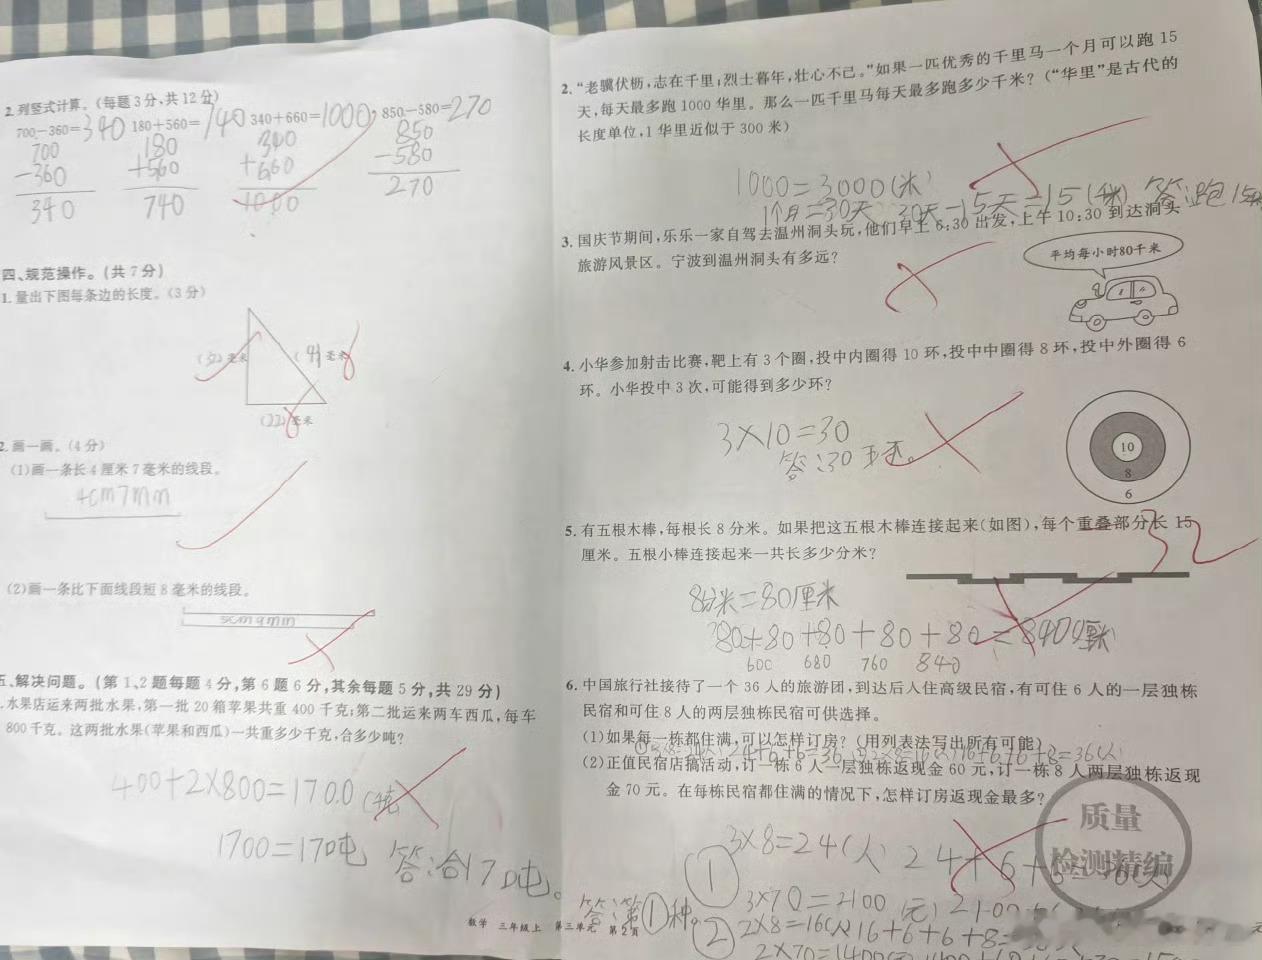 2.列竖式计算。(每题3分,共12分)
700-360=340 180+560=740 340+660=1000 850-580=270
700 180 340 850
-360 +560 +660 -580
340 740 1000 270
四、规范操作。(共7分)
1.量出下图每条边的长度。(3分)
毫米 毫米
(22)毫米
2.画一画。(4分)
(1)画一条长4厘米7毫米的线段。
4cm7mm
(2)画一条比下面线段短8毫米的线段。
5cm9mm
五、解决问题。(第1、2题每题4分,第6题6分,其余每题5分,共29分)
.水果店运来两批水果,第一批20箱苹果共重400千克;第二批运来两车西瓜,每车
800千克。这两批水果(苹果和西瓜)一共重多少千克,合多少吨?
400+2×800=1700
1700=170吨 答:合170吨。
数学 三年级上 第三单元 第2页
2.“老骥伏枥,志在千里;烈士暮年,壮心不已。”如果一匹优秀的千里马一个月可以跑15
天,每天最多跑1000华里。那么一匹千里马每天最多跑多少千米?(“华里”是古代的
长度单位,1华里近似于300米)
1000=3000(米)
1个月=30天 30天-15天=15(千米) 答:跑15
3.国庆节期间,乐乐一家自驾去温州洞头玩,他们早上6:30出发,上午10:30到达洞头
旅游风景区。宁波到温州洞头有多远?
平均每小时80千米
4.小华参加射击比赛,靶上有3个圈,投中内圈得10环,投中中圈得8环,投中外圈得6
环。小华投中3次,可能得到多少环?
3×10=30
答:30环。
10
8
6
5.有五根木棒,每根长8分米。如果把这五根木棒连接起来(如图),每个重叠部分长15
厘米。五根小棒连接起来一共长多少分米?
32
8分米=80厘米
80+80+80+80+80=8400厘米
600 680 760 840
6.中国旅行社接待了一个36人的旅游团,到达后入住高级民宿,有可住6人的一层独栋
民宿和可住8人的两层独栋民宿可供选择。
(1)如果每一栋都住满,可以怎样订房?(用列表法写出所有可能)
24+6+6=36 16+6+6+8=36(人)
(2)正值民宿店搞活动,订一栋6人一层独栋返现金60元,订一栋8人两层独栋返现
金70元。在每栋民宿都住满的情况下,怎样订房返现金最多?
质量
检测精编
① 3×8=24(人) 24+6+6
3×70=2100(元)
答:第①种。
② 2×8=16(人) 16+6+6+8=